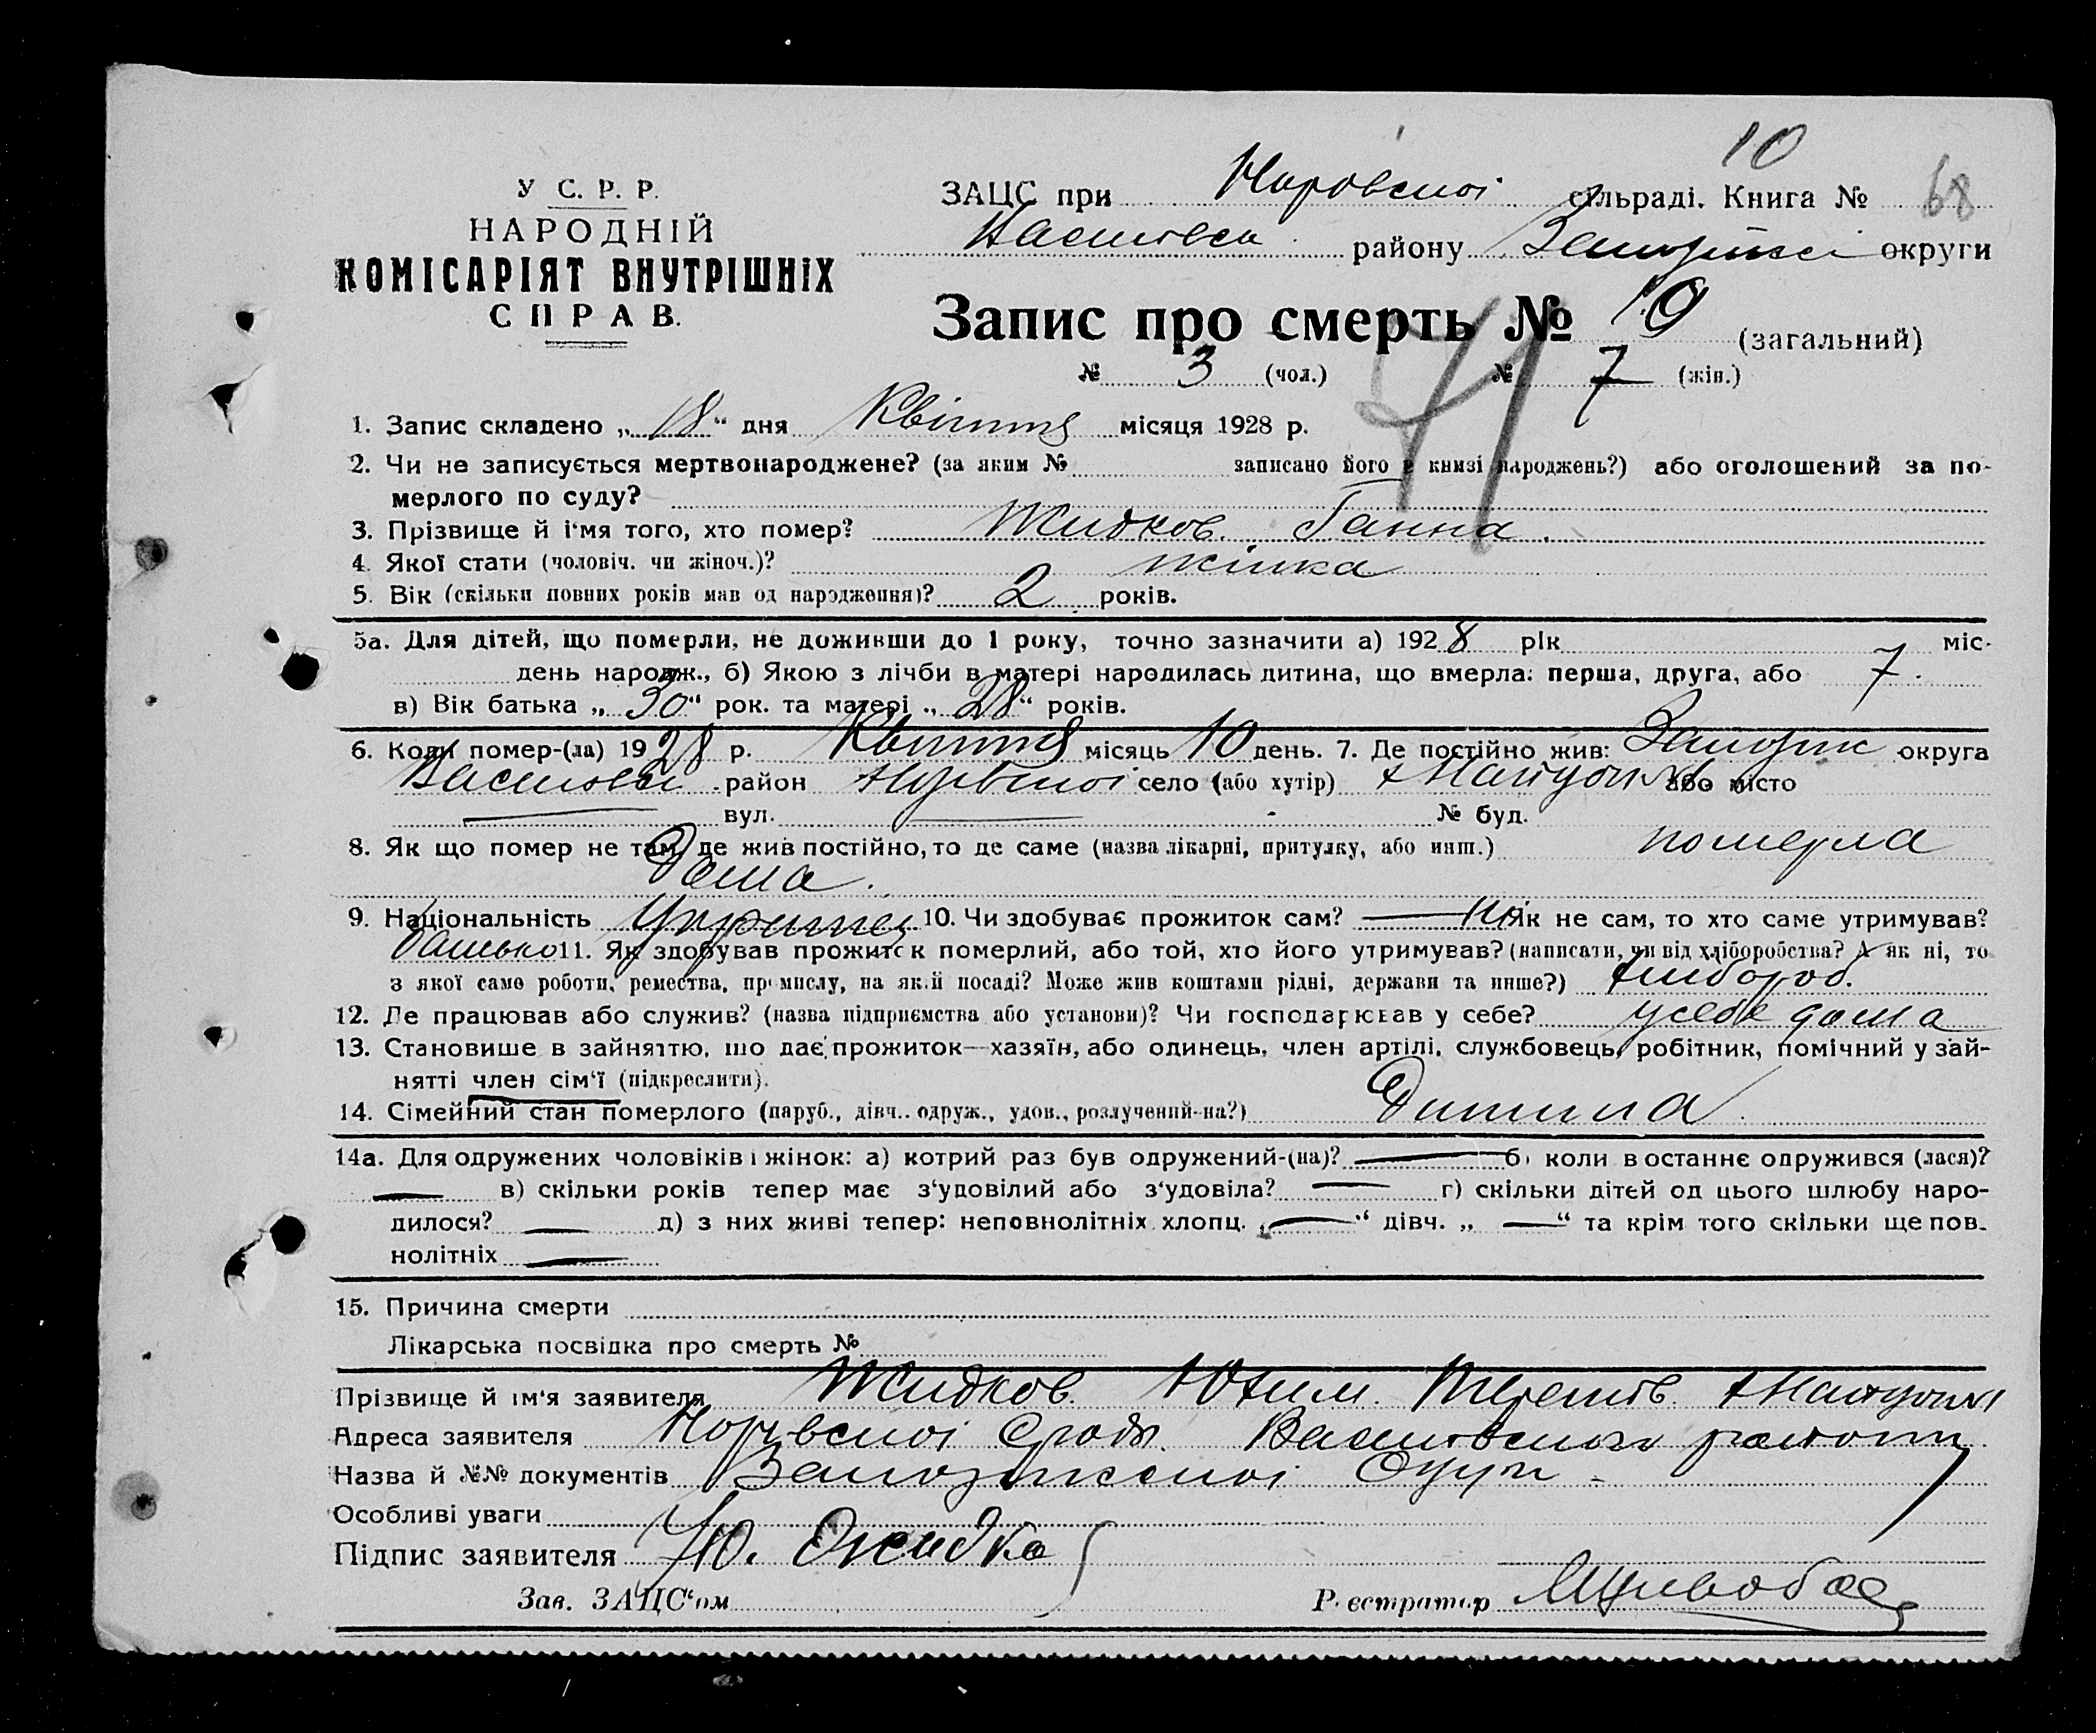 10
У С. Р. Р.
НАРОДНІЙ
КОМІСАРІЯТ ВНУТРІШНІХ
СПРАВ.
ЗАЦС при сільраді. Книга № 68
району округи
Запис про смерть № 10 (загальний)
№ 3 (чол.) № 7 (жін.)
41
1. Запис складено „ 18 “ дня Квітня місяця 1928 р.
2. Чи не записується мертвонароджене? (за яким № записано його в книзі народжень?) або оголошений за по-
мерлого по суду?
3. Прізвище й і‘мя того, хто помер? Жидков. Ганна.
4. Якої стати (чоловіч. чи жіноч.)? жінка
5. Вік (скільки повних років мав од народження)? 2 років.
5а. Для дітей, що померли, не доживши до 1 року, точно зазначити а) 1928 рік міс.
день народж., б) Якою з лічби в матері народилась дитина, що вмерла: перша, друга, або 7.
в) Вік батька „ 30 “ рок. та матері „ 28 “ років.
6. Коли помер-(ла) 1928 р. Квітня місяць 10 день. 7. Де постійно жив: округа
район село (або хутір) або місто
вул. № буд.
8. Як що помер не там, де жив постійно, то де саме (назва лікарні, притулку, або инш.) померла
дома.
9. Національність 10. Чи здобуває прожиток сам? — Як не сам, то хто саме утримував?
батько 11. Як здобував прожиток померлий, або той, хто його утримував? (написати, чи від хліборобства? А як ні, то
з якої саме роботи, ремества, промислу, на якій посаді? Може жив коштами рідні, держави та инше?) хлібороб.
12. Де працював або служив? (назва підприємства або установи)? Чи господарював у себе? у себе дома
13. Становище в зайняттю, що дає прожиток—хазяїн, або одинець, член артілі, службовець, робітник, помічний у зай-
нятті член сім‘ї (підкреслити).
14. Сімейний стан померлого (паруб., дівч.. одруж., удов., розлучений-на?) Дитина
14а. Для одружених чоловіків і жінок: а) котрий раз був одружений-(на)? — б) коли в останнє одружився (лася)?
— в) скільки років тепер має з‘удовілий або з‘удовіла? — г) скільки дітей од цього шлюбу наро-
дилося? — д) з них живі тепер: неповнолітніх хлопц. „ — “ дівч. „ — “ та крім того скільки ще пов-
нолітніх —
15. Причина смерти
Лікарська посвідка про смерть №
Прізвище й ім‘я заявителя Жидков. Юхим.
Адреса заявителя
Назва й №№ документів
Особливі уваги
Підпис заявителя Ю. Жидко
Зав. ЗАЦС‘ом Реєстратор